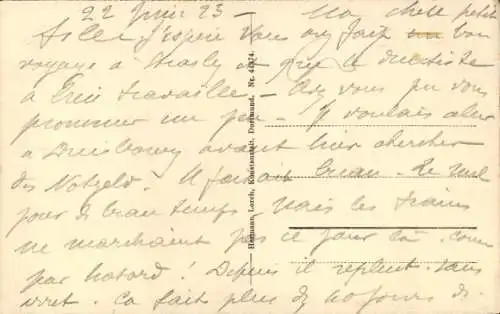 22 Juin 23 – Ma chère petite
fille J'espère vous avez fait bon
voyage à Strasbg et que le dentiste
a bien travaillé – Avez vous pu vous
promener un peu – Je voulais aller
à Duisbourg avant hier chercher
des Notgeld. Il faisait beau. Le seul
jour de beau temps mais les trains
ne marchaient pas ce jour là. comme
par hasard! Depuis il repleut. sans
arret. Ça fait plus de 40 jours de
Hermann Lorch, Kunstanstalt, Dortmund. Nr.